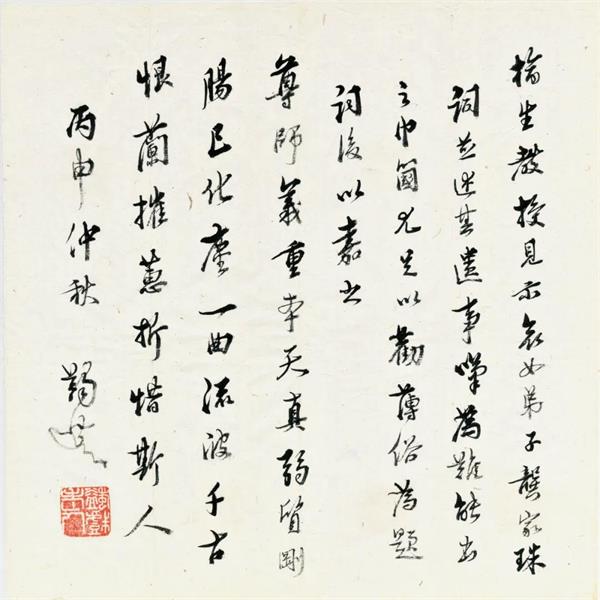 榆生教授見示哀女弟子龔家珠
詞並述其遺事嘆為難能出
之巾幗尤足以勸薄俗為題
詞後以嘉之
尊師義重本天真弱質剛
腸已化塵一曲流波千古
恨蘭摧蕙折惜斯人
丙申仲秋